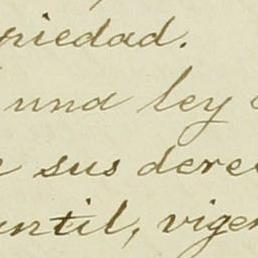 riedad.
una ley
sus dere
ntil, vigen